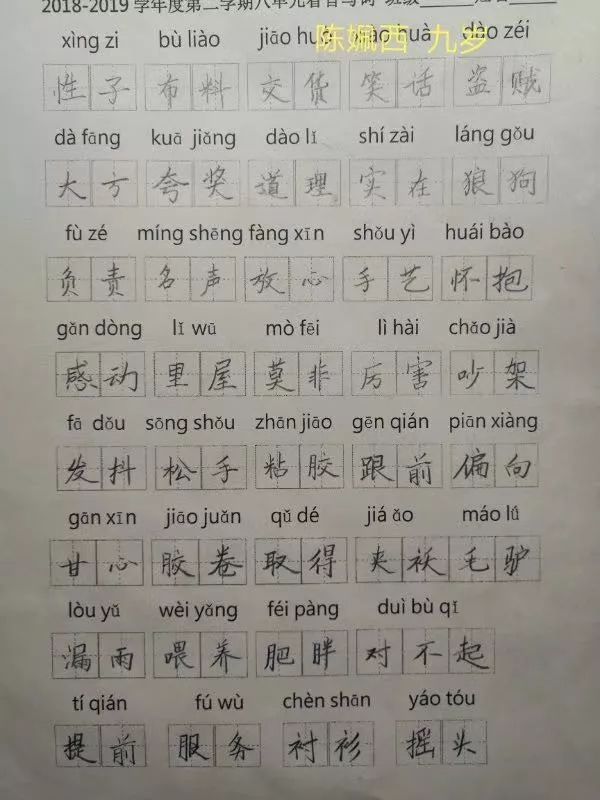 2018-2019 学年度第二学期八单元看音写词 班级
陈姵西 九岁
xìng zi bù liào jiāo huò xiào huà dào zéi
性子 布料 交货 笑话 盗贼
dà fāng kuā jiǎng dào lǐ shí zài láng gǒu
大方 夸奖 道理 实在 狼狗
fù zé míng shēng fàng xīn shǒu yì huái bào
负责 名声 放心 手艺 怀抱
gǎn dòng lǐ wū mò fēi lì hài chǎo jià
感动 里屋 莫非 厉害 吵架
fā dǒu sōng shǒu zhān jiāo gēn qián piān xiàng
发抖 松手 粘胶 跟前 偏向
gān xīn jiāo juǎn qǔ dé jiá ǎo máo lǘ
甘心 胶卷 取得 夹袄 毛驴
lòu yǔ wèi yǎng féi pàng duì bù qǐ
漏雨 喂养 肥胖 对不起
tí qián fú wù chèn shān yáo tóu
提前 服务 衬衫 摇头